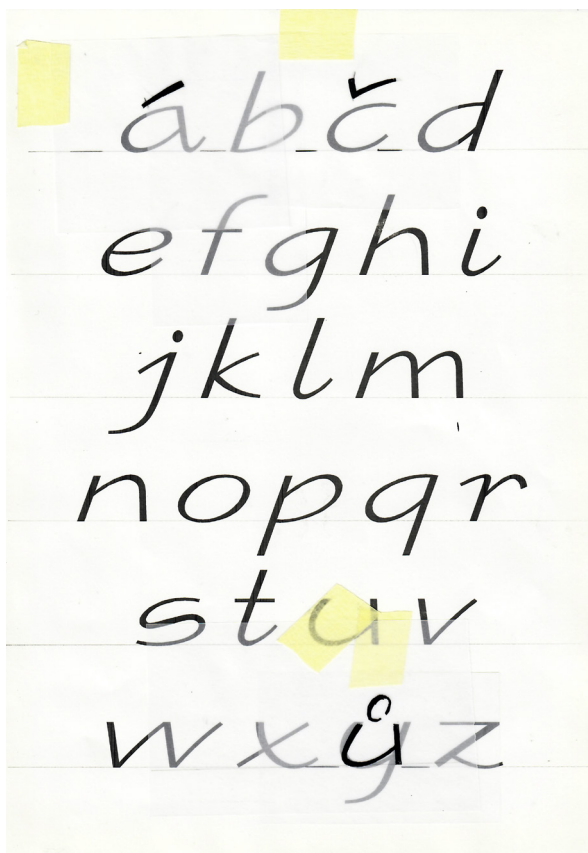 ábčd
efghi
jklm
nopqr
stuv
wxůz